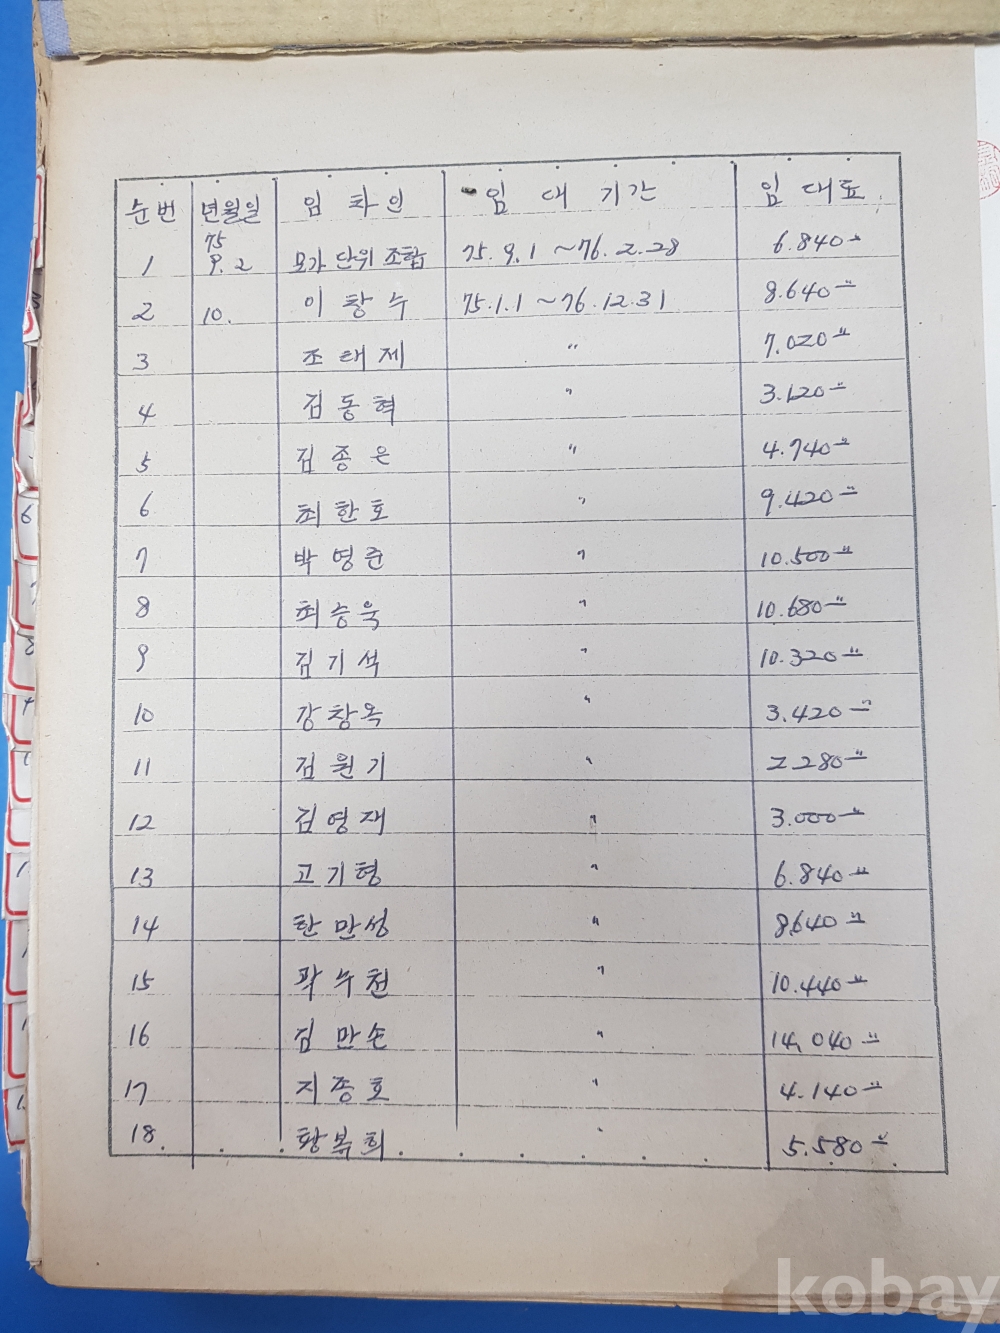 순번 년월일 임차인 임대기간 임대료
1 75 9.2 모가단위조합 75.9.1~76.2.28 6.840
2 10. 이창수 75.1.1~76.12.31 8.640
3 조태제 〃 7.020
4 김동혁 〃 3.120
5 김종은 〃 4.740
6 최한호 〃 9.420
7 박영준 〃 10.500
8 최승욱 〃 10.680
9 김기석 〃 10.320
10 강창옥 〃 3.420
11 김원기 〃 2280
12 김영재 〃 3.000
13 고기형 〃 6.840
14 한만성 〃 8640
15 곽수천 〃 10.440
16 김만손 〃 14,040
17 지종호 〃 4.140
18. 황복희 〃 5.580
6
8
kobay